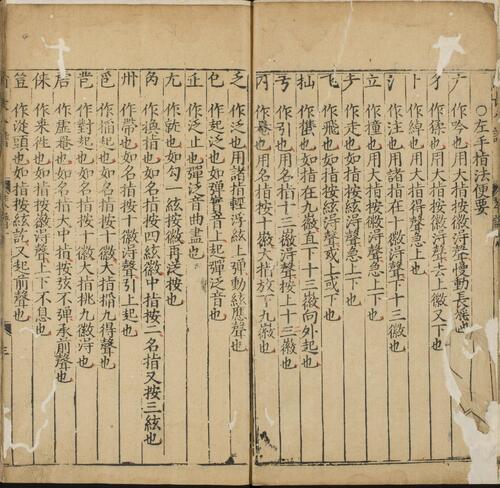 ○左手指法便要
作吟也用大指按徽淂聲慢動長藞也
作猱也用大指按徽淂聲去上徽又下也
卜 作綽也用大指得聲急上也
氵 作注也用諸指在十徽淂聲下十三徽也
立 作撞也用大指按徽淂聲急上下也
作走也如指按絃淂聲急下也
飞 作飛也如指按絃淂聲或上或下也
扯 作㩦也如指在九徽直下十三徽向外起也
作引也用名指十三徽淂聲按上十三徽也
作罨也用名指按十徽大指放下九徽也
之 作泛也用諸指輕浮絃上彈動絃應聲也
作起泛也如彈散音上起彈泛音也
作泛止也彈泛音曲盡也
尤 作就也如勾一絃按徽再泛按也
作換指也如名指按四絃徽中指按二名指又按三絃也
卅 作帶也如名指按十徽淂聲引上起也
作搯起也如名指按十徽大指搯九得聲也
作對起也如名指按十徽大指挑九徽淂也
作虛罨也如名指大中指按弦不弹承前聲也
倈 作来徃也如指按徽淂聲上下不息也
作從頭也如指按絃訖又起前聲也
三